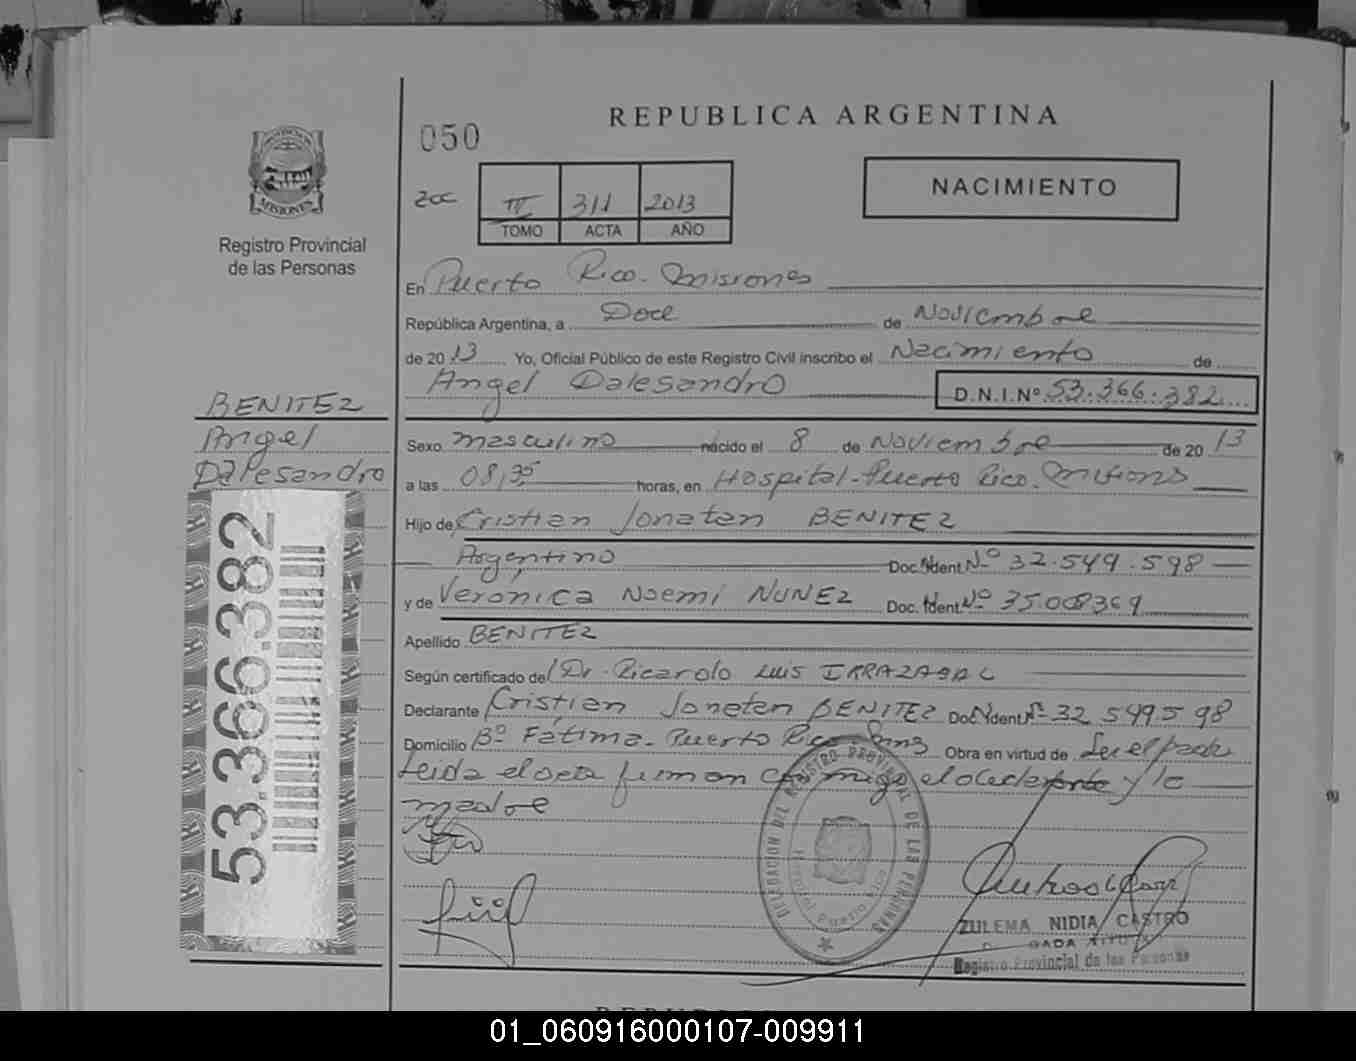 REPUBLICA ARGENTINA
050
NACIMIENTO
III 311 2013
TOMO ACTA AÑO
MISIONES
Registro Provincial
de las Personas
En Puerto Rico. Misiones
República Argentina, a Doce de Noviembre
de 2013 Yo, Oficial Público de este Registro Civil inscribo el Nacimiento de
Angel Dalesandro D.N.I.Nº 53.366.382
BENITEZ
Angel
Dalesandro
53.366.382
Sexo masculino nacido el 8 de Noviembre de 2013
a las 08,35 horas, en Hospital-Puerto Rico. Misiones
Hijo de Cristian Jonatan BENITEZ
Argentino Doc. Ident. Nº 32.549.598
y de Veronica Noemi NUNEZ Doc. Ident. Nº 35.008369
Apellido BENITEZ
Según certificado del Dr. Ricardo Luis IRRAZABAL
Declarante Cristian Jonatan BENITEZ Doc. Ident. Nº 32 549598
Domicilio Bº Fátima. Puerto Rico Mnes Obra en virtud de Ser el padre
Leida el acta firman conmigo el declarante y la
madre
DELEGACION DEL REGISTRO PROVINCIAL DE LAS PERSONAS
ZULEMA NIDIA CASTRO
Registro Provincial de las Personas
01_060916000107-009911